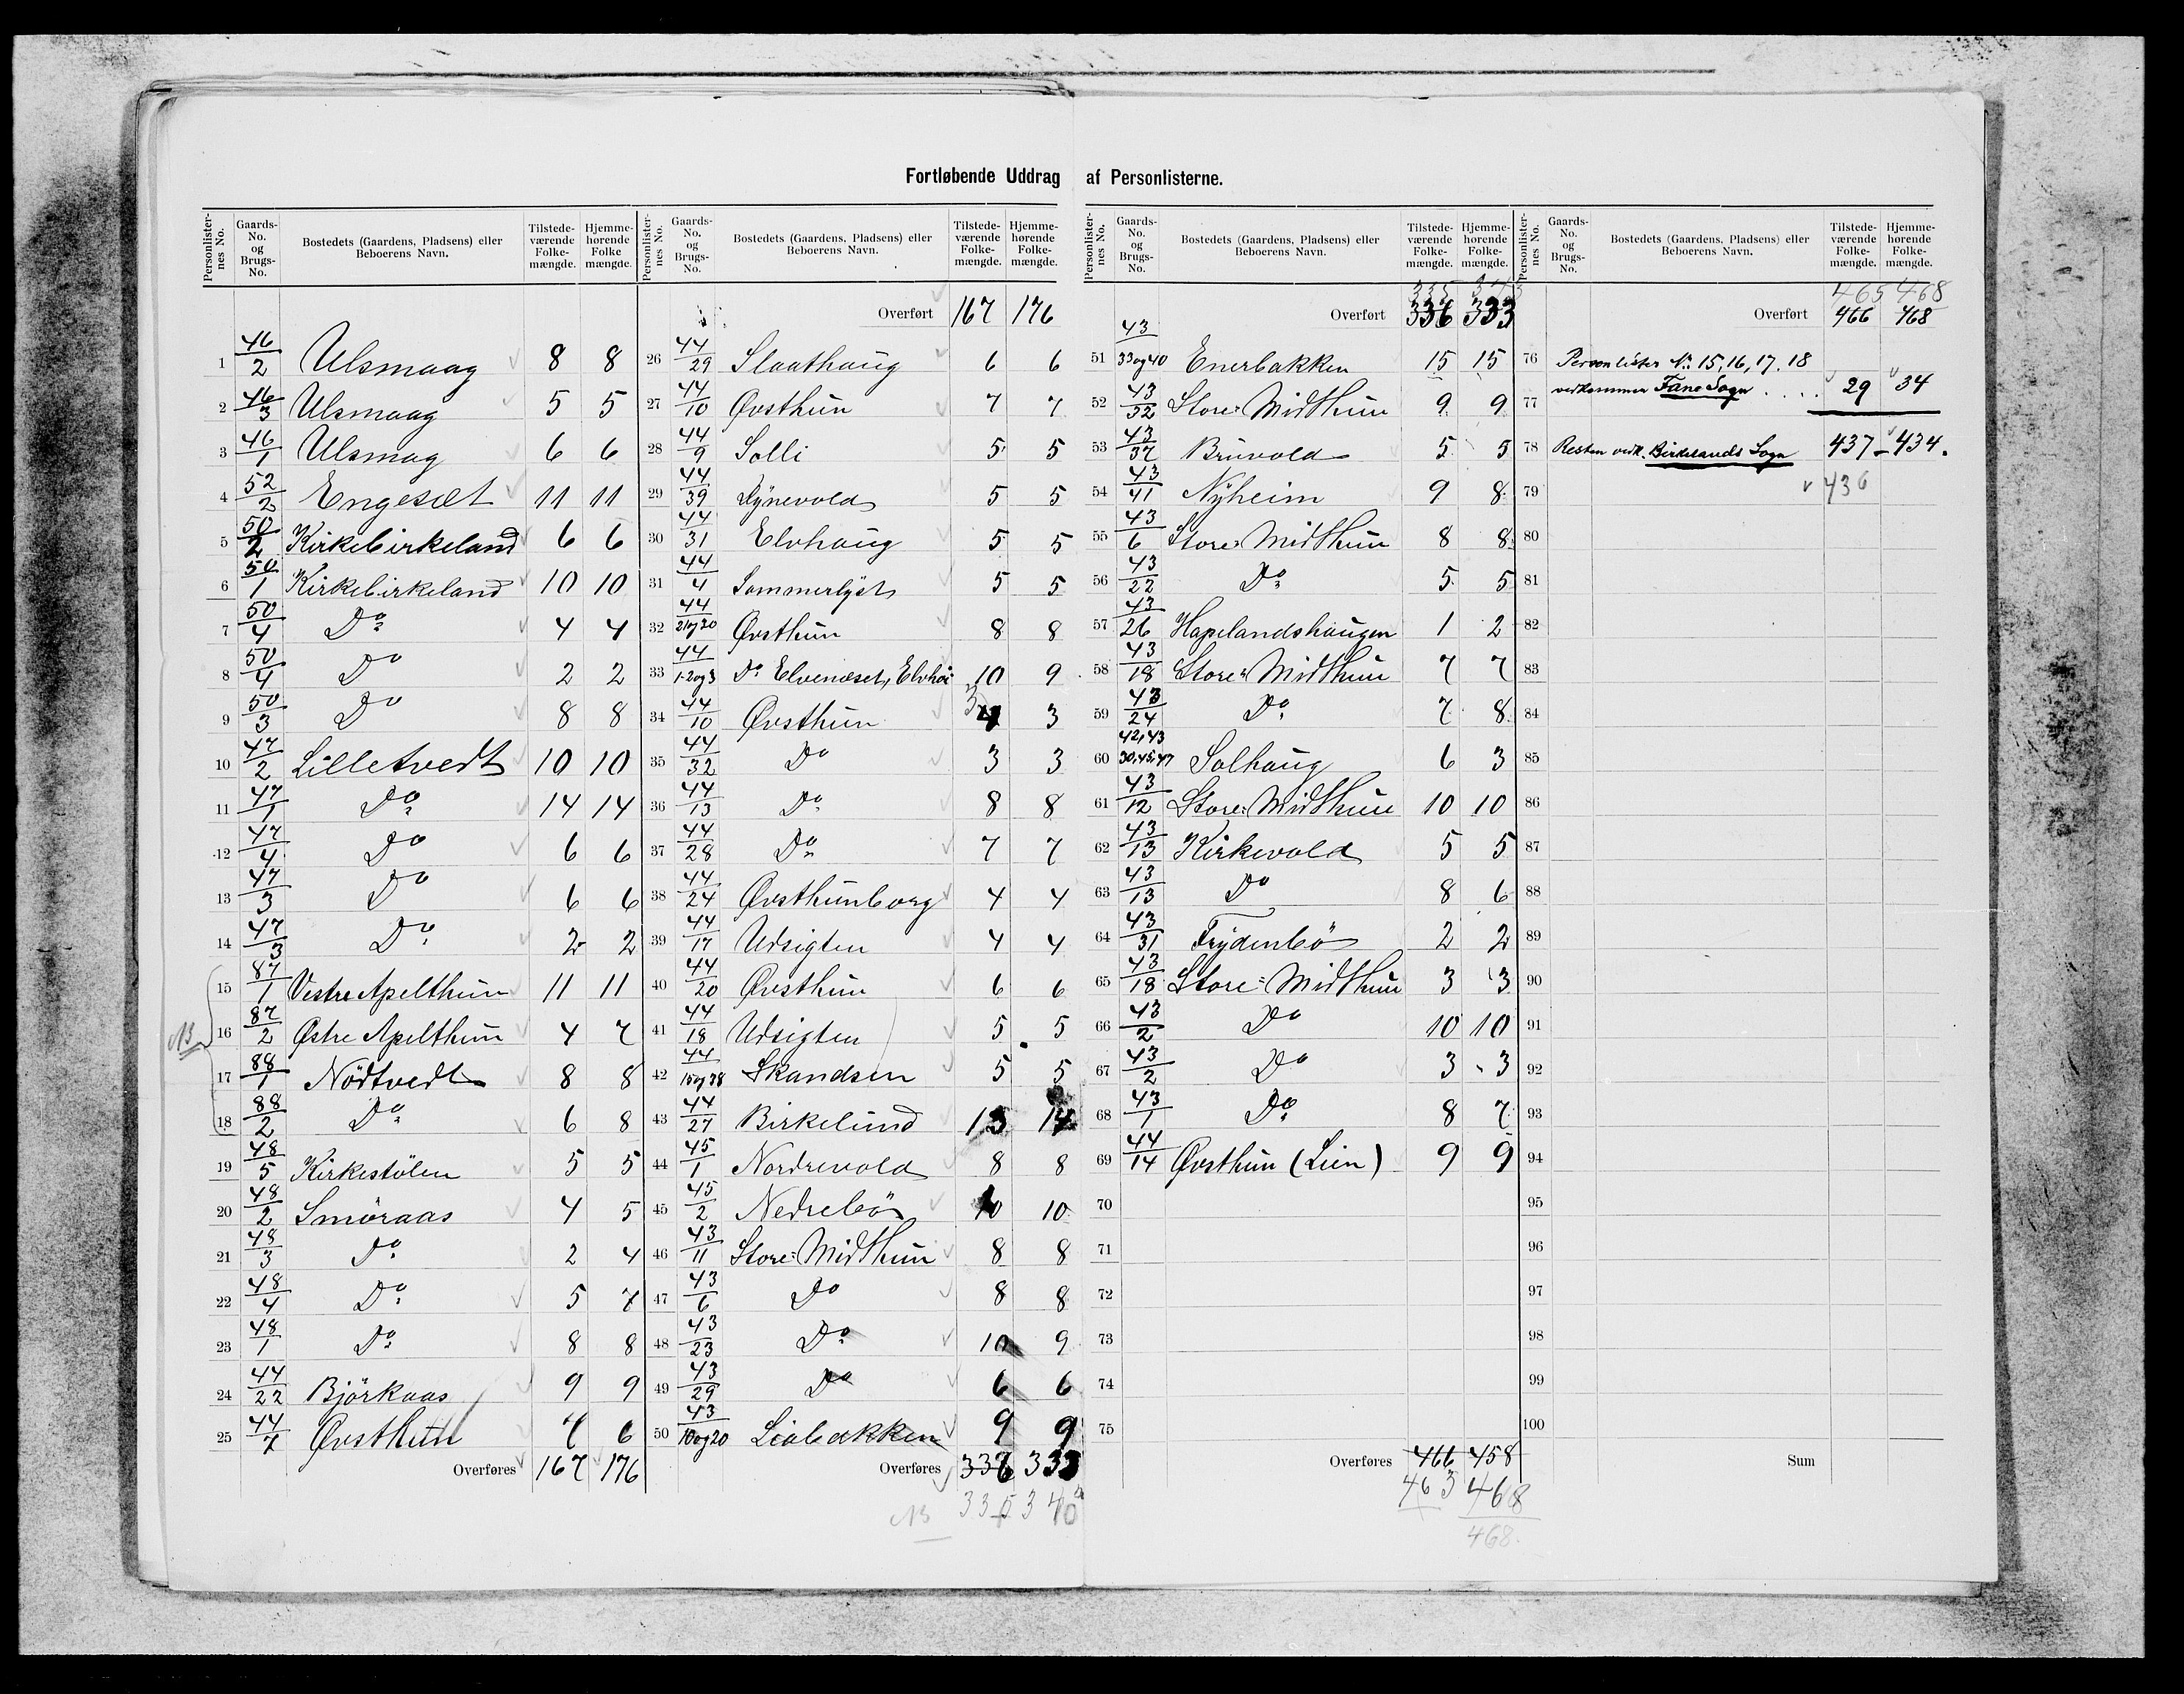 Fortløbende Uddrag af Personlisterne.
Personlister-nes No. Gaards-No. og Brugs-No. Bostedets (Gaardens, Pladsens) eller Beboerens Navn. Tilstede-værende Folke-mængde. Hjemme-hørende Folke mængde.
1 46/2 Ulsmaag 8 8
2 46/3 Ulsmaag 5 5
3 46/1 Ulsmag 6 6
4 52/2 Engeset 11 11
5 50/2 Kirkebirkeland 6 6
6 50/1 Kirkebirkeland 10 10
7 50/4 Do 4 4
8 50/4 Do 2 2
9 50/3 Do 8 8
10 47/2 Lilletvedt 10 10
11 47/1 Do 14 14
12 47/4 Do 6 6
13 47/3 Do 6 6
14 47/3 Do 2 2
NB
15 87/1 Vestre Apelthun 11 11
16 87/2 Østre Apelthun 4 7
17 88/1 Nödtvedt 8 8
18 88/2 Do 6 8
19 48/5 Kirkestölen 5 5
20 48/2 Smöraas 4 5
21 48/3 Do 2 4
22 48/4 Do 5 7
23 48/1 Do 8 8
24 44/22 Björkaas 9 9
25 44/7 Øvsthun 7 6
Overføres 167 176
Personlister-nes No. Gaards-No. og Brugs-No. Bostedets (Gaardens, Pladsens) eller Beboerens Navn. Tilstede-værende Folke-mængde. Hjemme-hørende Folke-mængde.
Overført 167 176
26 44/29 Slaathaug 6 6
27 44/10 Øvsthun 7 7
28 44/9 Solli 5 5
29 44/39 Dynevold 5 5
30 44/31 Elvhaug 5 5
31 44/4 Sommerlyst 5 5
32 44/21og20 Øvsthun 8 8
33 44/1.2og3 Do Elveneset, Elvhøi 10 9
34 44/10 Øvsthun 3 3
35 44/32 Do 3 3
36 44/13 Do 8 8
37 44/28 Do 7 7
38 44/24 Øvsthunborg 4 4
39 44/17 Udsigten 4 4
40 44/20 Øvsthun 6 6
41 44/18 Udsigten 5 5
42 44/15og38 Skandsen 5 5
43 44/27 Birkelund 13 14
44 45/1 Nordrevold 8 8
45 45/2 Nedrebö 10 10
46 43/11 Store Midthun 8 8
47 43/6 Do 8 8
48 43/23 Do 10 9
49 43/29 Do 6 6
50 43/10og20 Liabakken 9 9
Overføres 336 333
NB 335 340
Personlister-nes No. Gaards-No. og Brugs-No. Bostedets (Gaardens, Pladsens) eller Beboerens Navn. Tilstede-værende Folke-mængde. Hjemme-hørende Folke-mængde.
335 343
Overført 336 333
51 43/33og40 Enerbakken 15 15
52 43/32 Store Midthun 9 9
53 43/37 Brunvold 5 5
54 43/41 Nyheim 9 8
55 43/6 Store Midthun 8 8
56 43/22 Do 5 5
57 43/26 Hapelandshaugen 1 2
58 43/18 Store Midthun 7 7
59 43/24 Do 7 8
60 42,43/30,45,47 Solhaug 6 3
61 43/12 Store Midthun 10 10
62 43/13 Kirkevold 5 5
63 43/13 Do 8 6
64 43/31 Frydenbö 2 2
65 43/18 Store Midthun 3 3
66 43/2 Do 10 10
67 43/2 Do 3 3
68 43/1 Do 8 7
69 44/14 Øvsthun (Lien) 9 9
70
71
72
73
74
75
Overføres 466 458
463 468
468.
Personlister-nes No. Gaards-No. og Brugs-No. Bostedets (Gaardens, Pladsens) eller Beboerens Navn. Tilstede-værende Folke-mængde. Hjemme-hørende Folke-mængde.
465 468
Overført 466 468
76 Personlister No 15, 16, 17, 18
77 vedkommer Fane Sogn .... 29 34
78 Resten vedk. Birkelands Sogn 437 - 434.
79 436
80
81
82
83
84
85
86
87
88
89
90
91
92
93
94
95
96
97
98
99
100
Sum